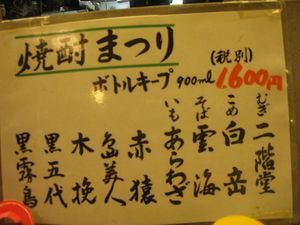 焼酎まつり
(税別)
ボトルキープ 900ml 1,600円
むぎ 二階堂
こめ 白岳
そば 雲海
いも あらわざ
赤猿
島美人
木挽
黒五代
黒霧島